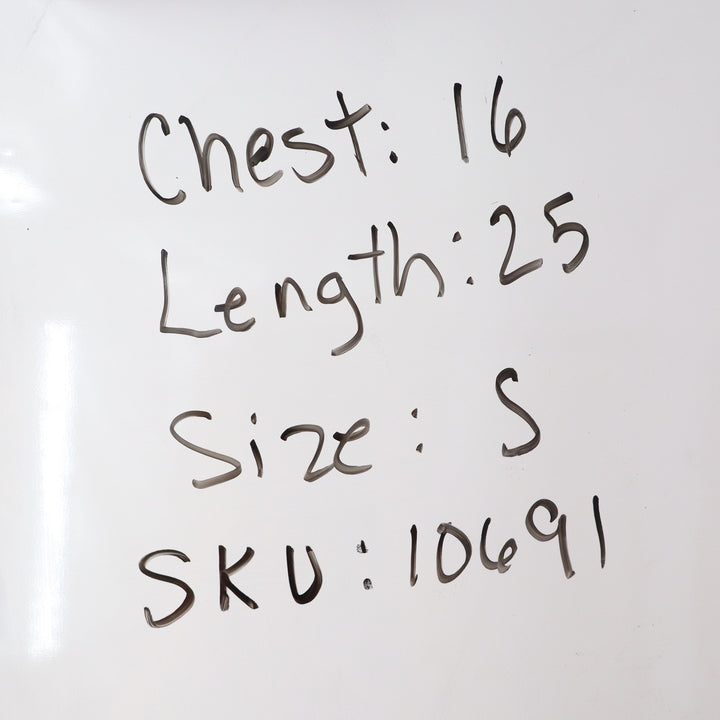 Chest: 16
Length: 25
Size: S
SKU: 10691